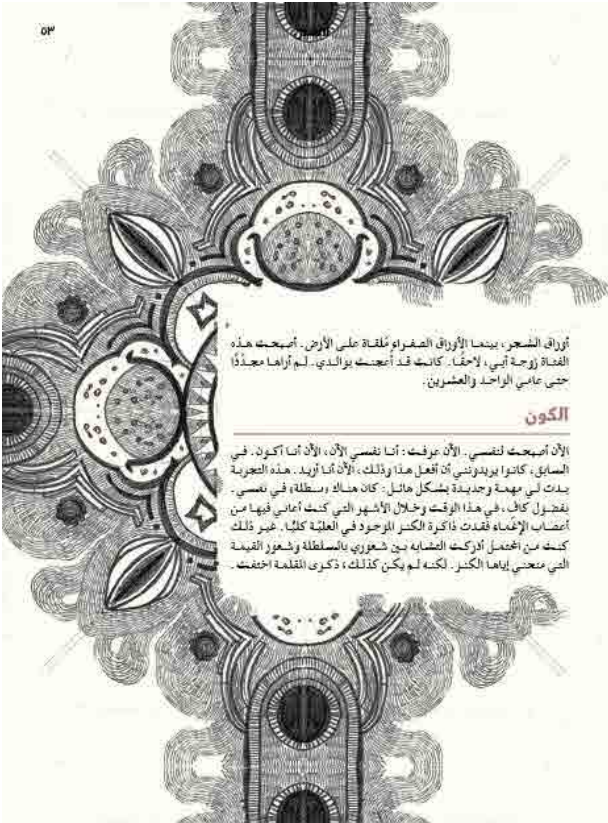 ٥٣
أوراق الشجر، بينما الأوراق الصفراء مُلقاة على الأرض. أصبحت هذه
الفتاة زوجة أبي، لاحقًا. كانت قد أُعجبت بوالدي. لم أراها مجدّدًا
حتى عامي الواحد والعشرين.
الكون
الآن أصبحت لنفسي. الآن عرفت: أنا نفسي الآن، الآن أنا أكون. في
السابق، كانوا يريدونني أن أفعل هذا وذلك، الآن أنا أريد. هذه التجربة
بدت لي مهمة وجديدة بشكل هائل: كان هناك «سلطة» في نفسي.
بفضول كاف، في هذا الوقت وخلال الأشهر التي كنت أعاني فيها من
أعصاب الإغماء فقدت ذاكرة الكنز الموجود في العليّة كليًّا. غير ذلك
كنت من المحتمل أدركت التشابه بين شعوري بالسلطة وشعور القيمة
التي منحني إياها الكنز. لكنه لم يكن كذلك، ذكرى المقلمة اختفت.